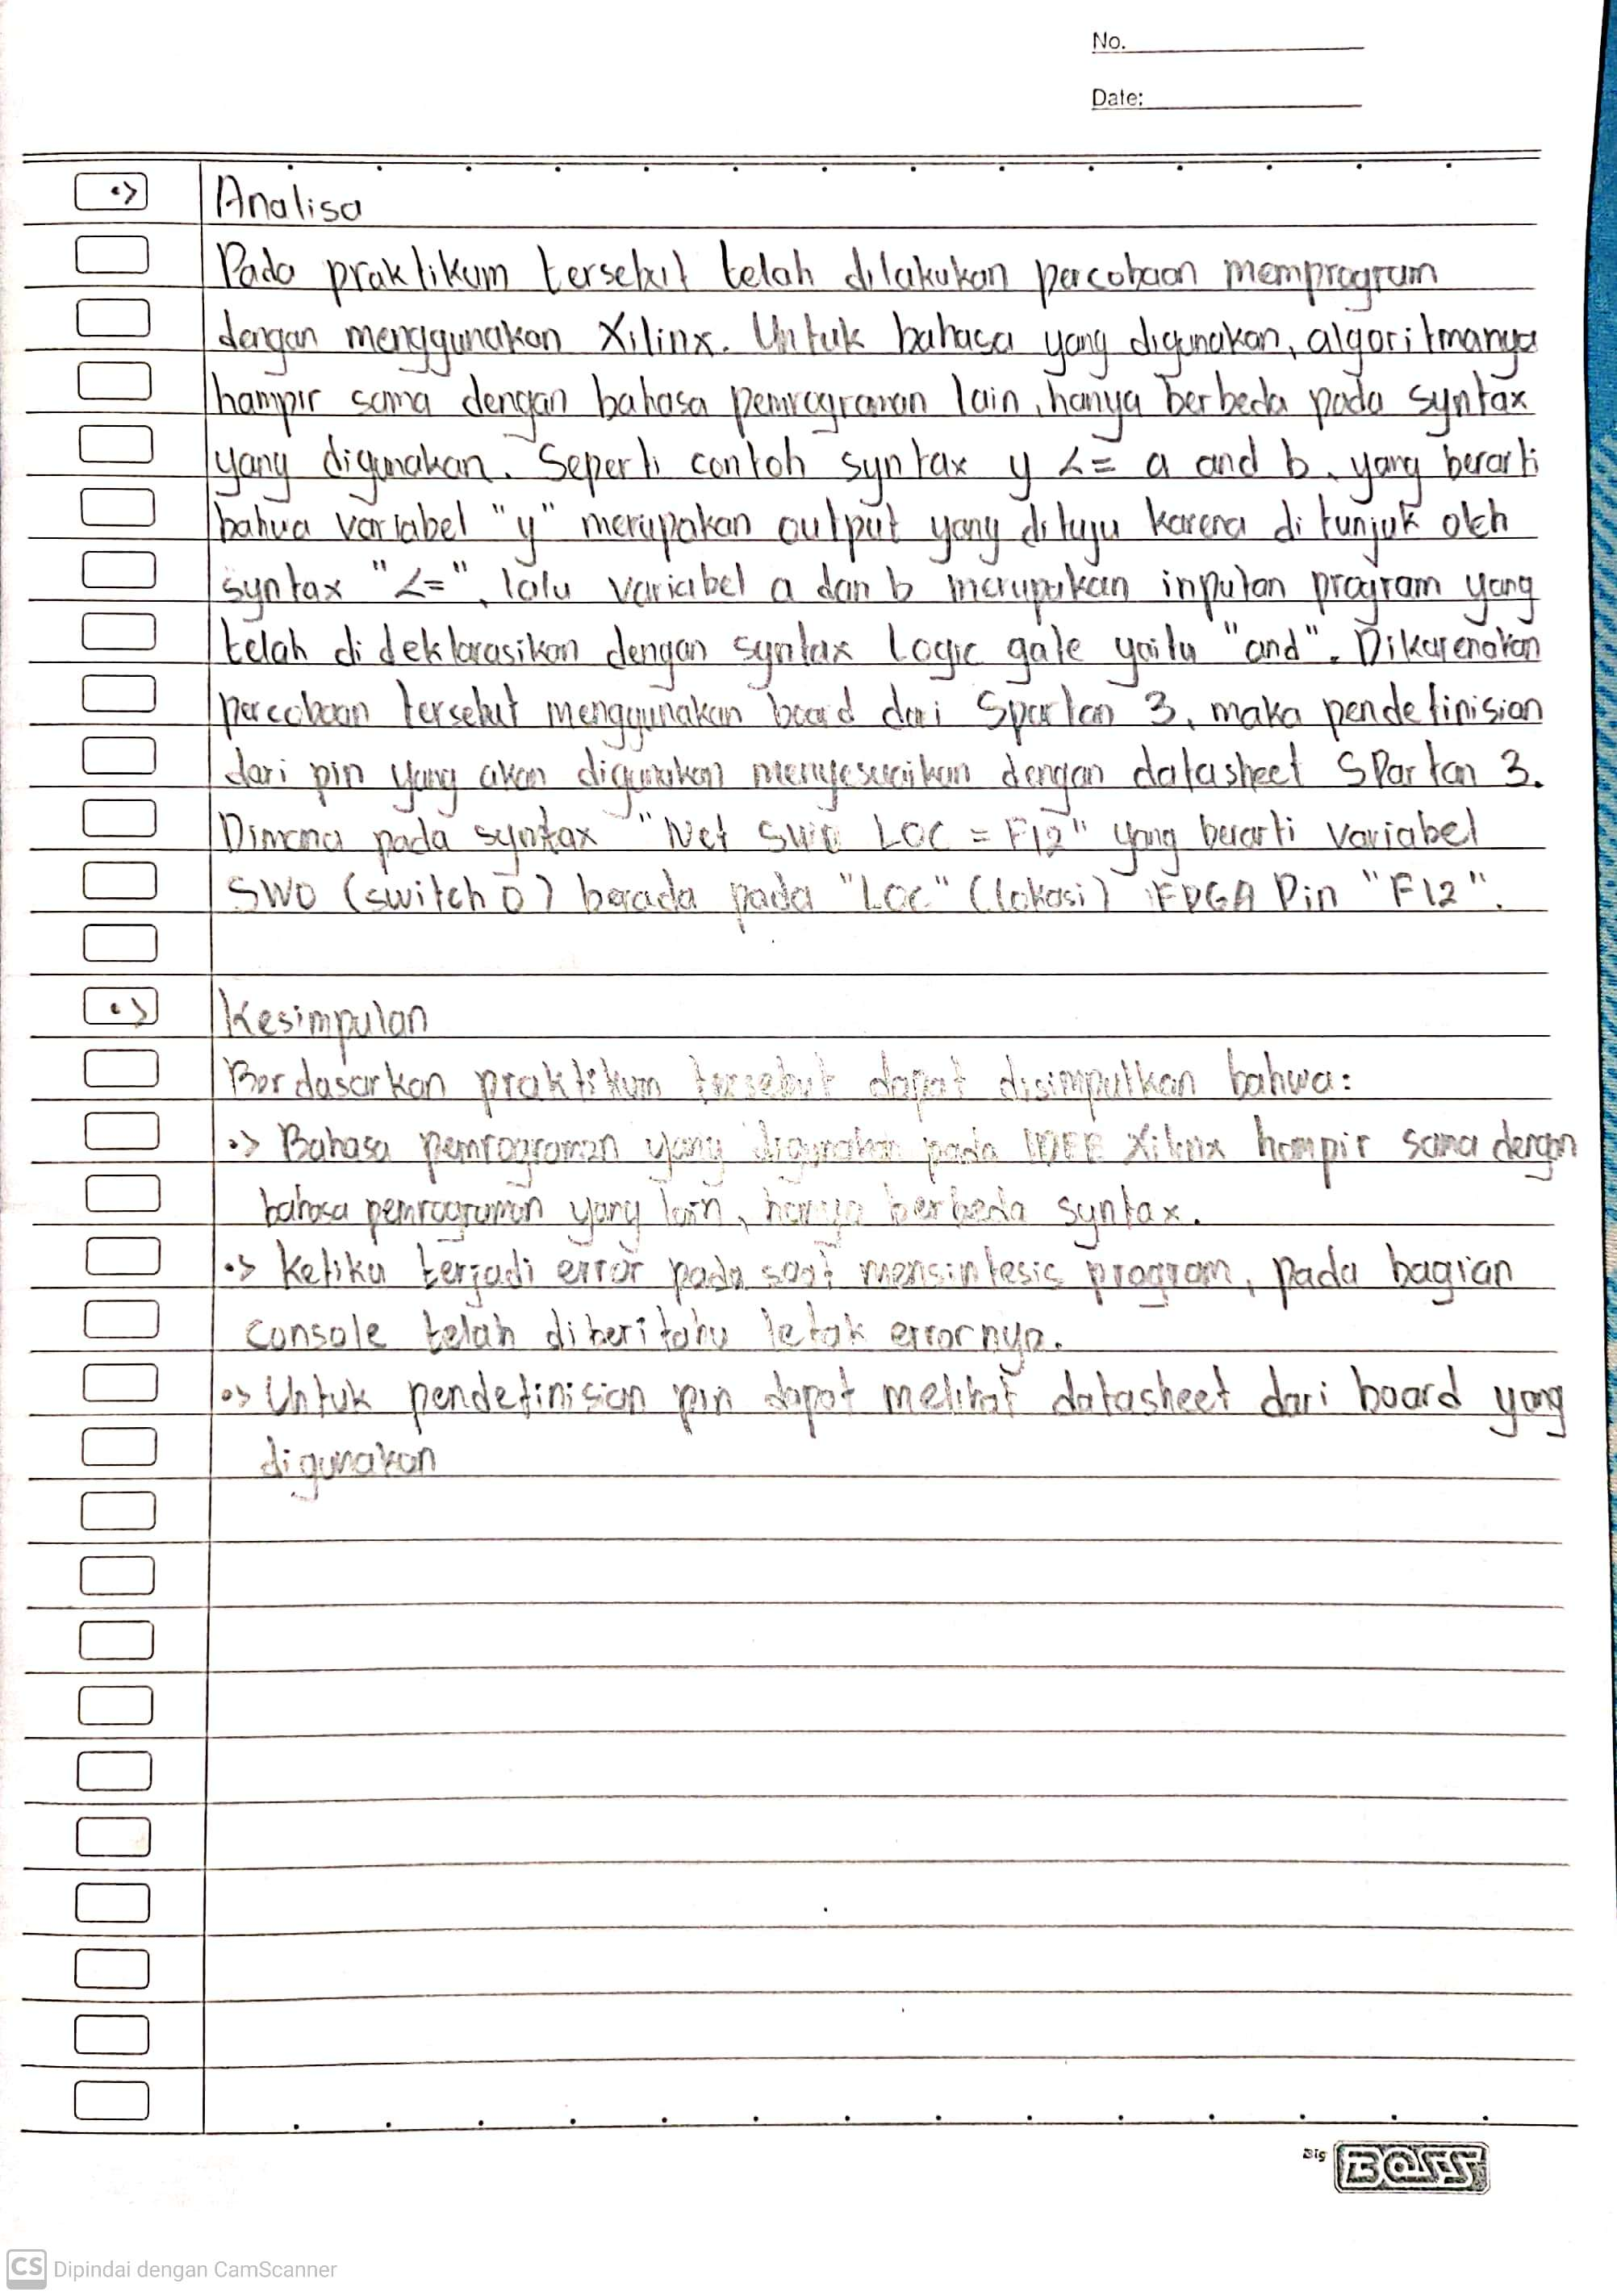 No.
Date:
•> Analisa
Pada praktikum tersebut telah dilakukan percobaan memprogram
dengan menggunakan Xilinx. Untuk bahasa yang digunakan, algoritmanya
hampir sama dengan bahasa pemrograman lain, hanya berbeda pada syntax
yang digunakan. Seperti contoh syntax y <= a and b, yang berarti
bahwa variabel "y" merupakan output yang dituju karena ditunjuk oleh
syntax "<=", lalu variabel a dan b merupakan inputan program yang
telah di deklarasikan dengan syntax logic gate yaitu "and". Dikarenakan
percobaan tersebut menggunakan board dari Spartan 3, maka pendefinisian
dari pin yang akan digunakan menyesuaikan dengan datasheet Spartan 3.
Dimana pada syntax "Net SW0 LOC = F12" yang berarti variabel
SW0 (switch 0) berada pada "LOC" (lokasi) FPGA Pin "F12".
•> Kesimpulan
Berdasarkan praktikum tersebut dapat disimpulkan bahwa:
•> Bahasa pemrograman yang digunakan pada Xilinx hampir sama dengan
bahasa pemrograman yang lain, hanya berbeda syntax.
•> Ketika terjadi error pada saat mensintesis program, pada bagian
console telah diberitahu letak errornya.
•> Untuk pendefinisian pin dapat melihat datasheet dari board yang
digunakan
Big BOSS
CS Dipindai dengan CamScanner